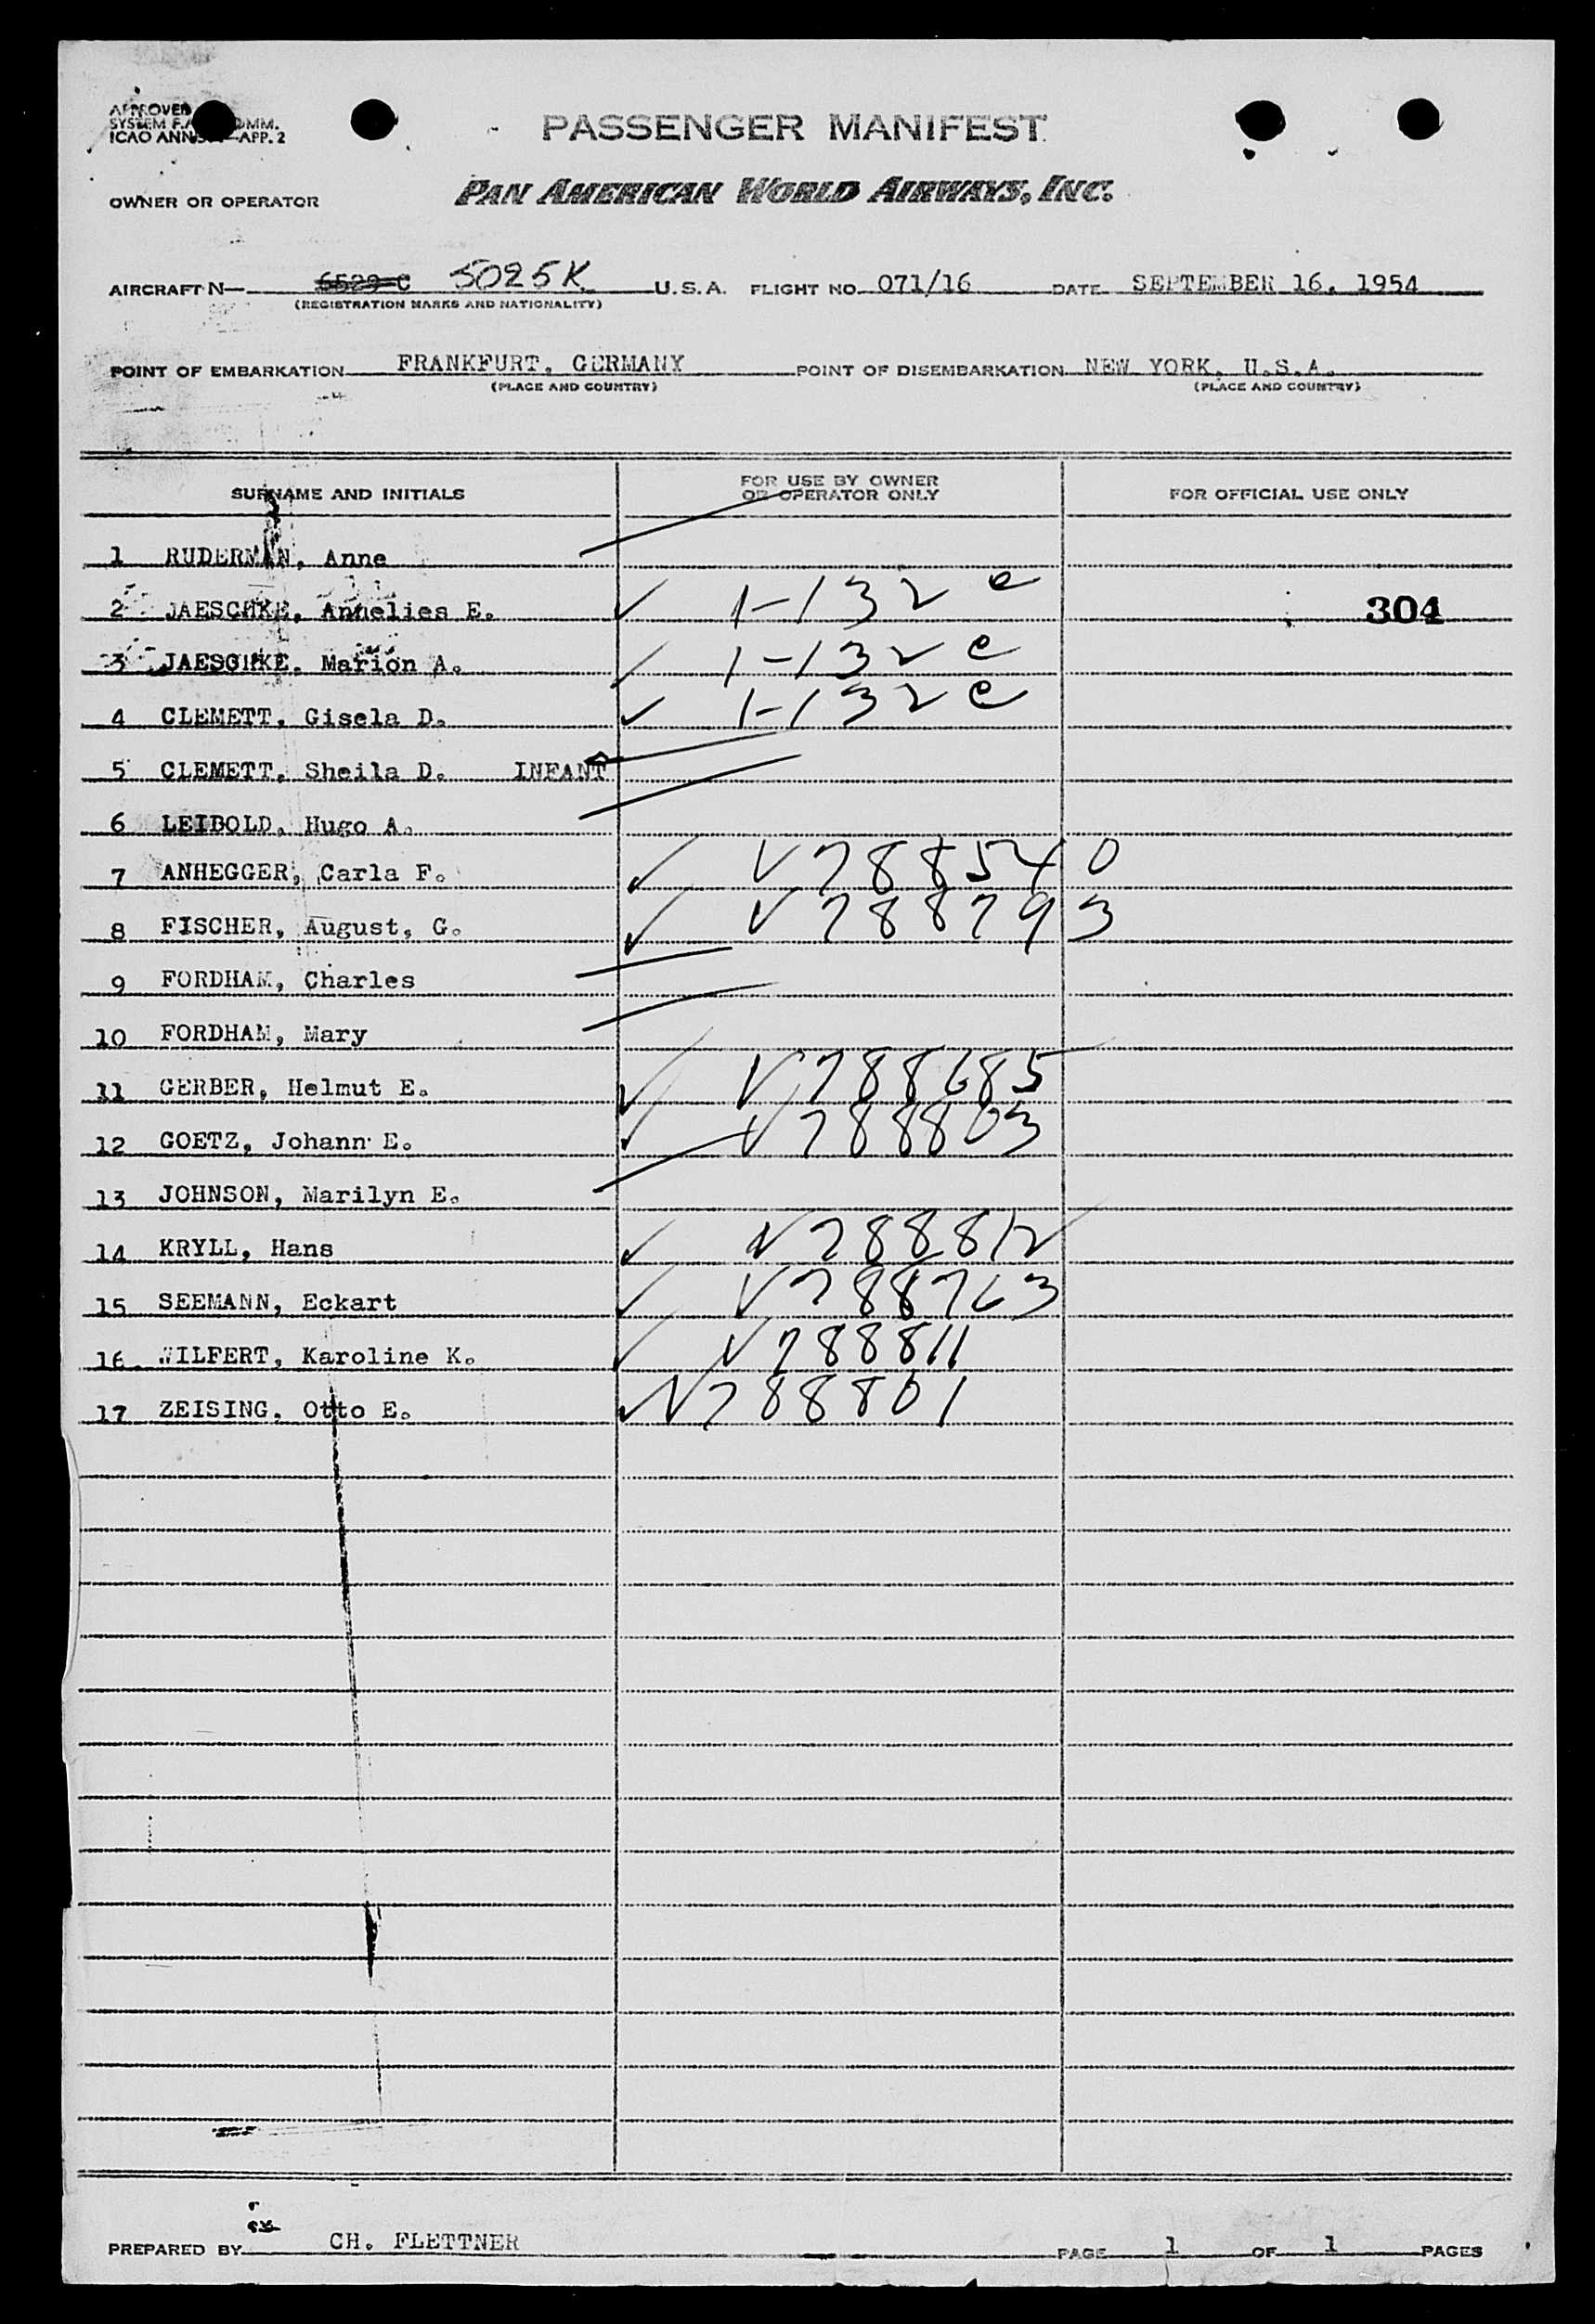 APPROVED
SYSTEM COMM.
ICAO APP. 2
PASSENGER MANIFEST
OWNER OR OPERATOR PAN AMERICAN WORLD AIRWAYS, INC.
AIRCRAFT N— 6529 C 5025K U.S.A. FLIGHT NO. 071/16 DATE SEPTEMBER 16, 1954
(REGISTRATION MARKS AND NATIONALITY)
POINT OF EMBARKATION FRANKFURT, GERMANY POINT OF DISEMBARKATION NEW YORK, U.S.A.
(PLACE AND COUNTRY) (PLACE AND COUNTRY)
SURNAME AND INITIALS FOR USE BY OWNER OR OPERATOR ONLY FOR OFFICIAL USE ONLY
1 RUDERMAN, Anne
2 JAESCHKE, Annelies E. 1-132 e 304
3 JAESCHKE, Marion A. 1-132 e
4 CLEMETT, Gisela D. 1-132 e
5 CLEMETT, Sheila D. INFANT
6 LEIBOLD, Hugo A.
7 ANHEGGER, Carla F. V788540
8 FISCHER, August, G. V788793
9 FORDHAM, Charles
10 FORDHAM, Mary
11 GERBER, Helmut E. V788685
12 GOETZ, Johann E. V788803
13 JOHNSON, Marilyn E.
14 KRYLL, Hans V788812
15 SEEMANN, Eckart V788763
16 WILFERT, Karoline K. V788811
17 ZEISING, Otto E. V788801
PREPARED BY CH. FLETTNER PAGE 1 OF 1 PAGES